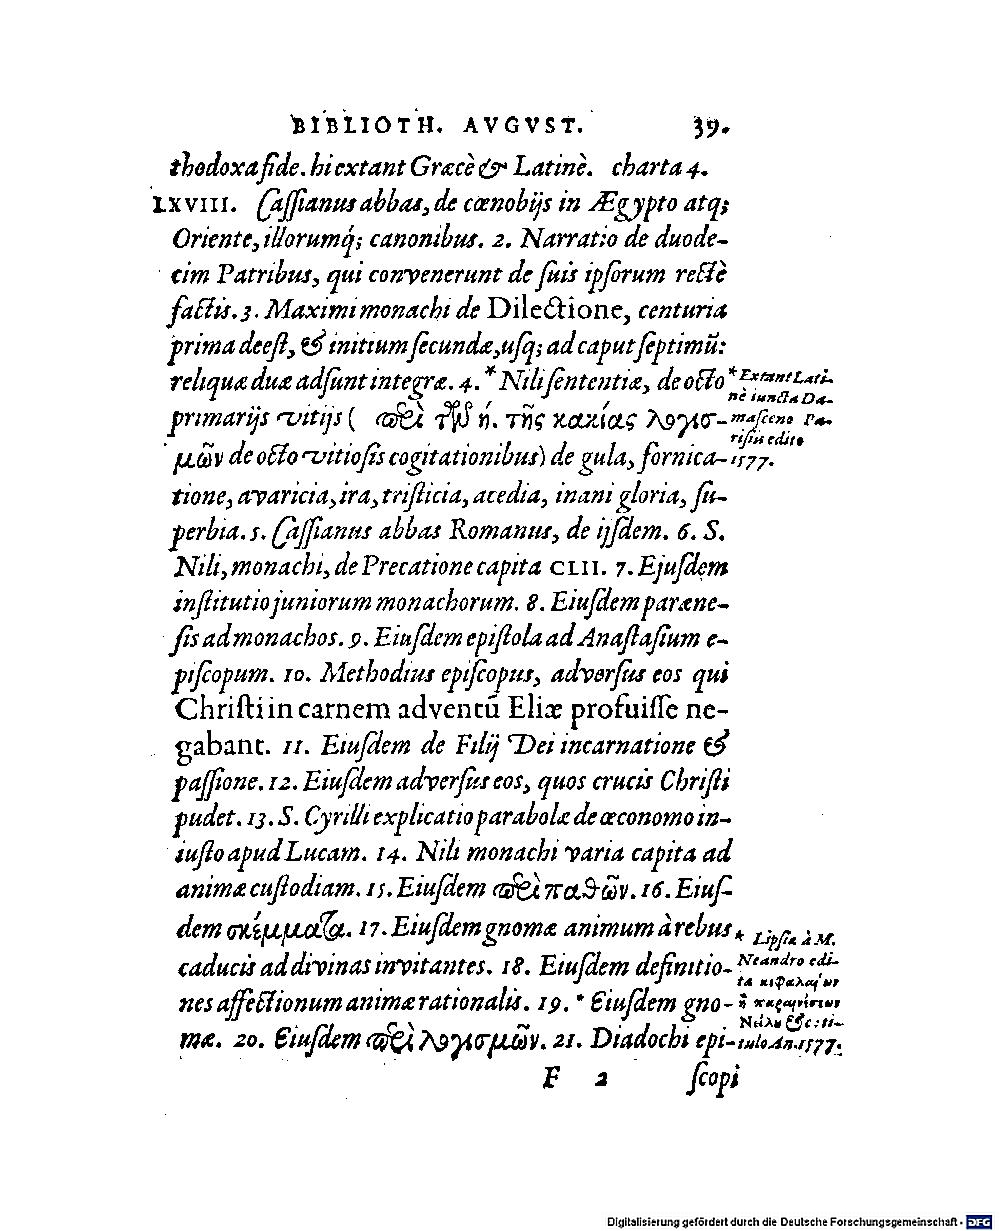 BIBLIOTH. AVGVST. 39.
thodoxa fide. hi extant Græcè & Latinè. charta 4.
LXVIII. Caſſianus abbas, de cœnobijs in Ægypto atq;
Oriente, illorumq́; canonibus. 2. Narratio de duode-
cim Patribus, qui convenerunt de ſuis ipſorum rectè
factis. 3. Maximi monachi de Dilectione, centuria
prima deeſt, & initium ſecundæ, uſq; ad caput ſeptimũ:
reliquæ duæ adſunt integræ. 4. * Nili ſententiæ, de octo
primarijs vitijs ( περὶ τῶν ή. τῆς κακίας λογισ-
μῶν de octo vitioſis cogitationibus) de gula, fornica-
tione, avaricia, ira, triſticia, acedia, inani gloria, ſu-
perbia. 5. Caſſianus abbas Romanus, de ijſdem. 6. S.
Nili, monachi, de Precatione capita CLII. 7. Ejuſdem
inſtitutio juniorum monachorum. 8. Eiuſdem paræne-
ſis ad monachos. 9. Eiuſdem epiſtola ad Anaſtaſium e-
piſcopum. 10. Methodius epiſcopus, adverſus eos qui
Chriſti in carnem adventũ Eliæ profuiſſe ne-
gabant. 11. Eiuſdem de Filij Dei incarnatione &
paſſione. 12. Eiuſdem adverſus eos, quos crucis Chriſti
pudet. 13. S. Cyrilli explicatio parabolæ de œconomo in-
iuſto apud Lucam. 14. Nili monachi varia capita ad
animæ cuſtodiam. 15. Eiuſdem περὶ παθῶν. 16. Eiuſ-
dem σκέμματα. 17. Eiuſdem gnomæ animum à rebus
caducis ad divinas invitantes. 18. Eiuſdem definitio-
nes affectionum animæ rationalis. 19. * Eiuſdem gno-
mæ. 20. Eiuſdem περὶ λογισμῶν. 21. Diadochi epi-
* Extant Lati-
nè iuncta Da-
maſceno Pa-
riſiis edito
1577.
* Lipſiæ à M.
Neandro edi-
ta
Νείλου &c: ti-
tulo An. 1577.
F 2 ſcopi
Digitalisierung gefördert durch die Deutsche Forschungsgemeinschaft - DFG